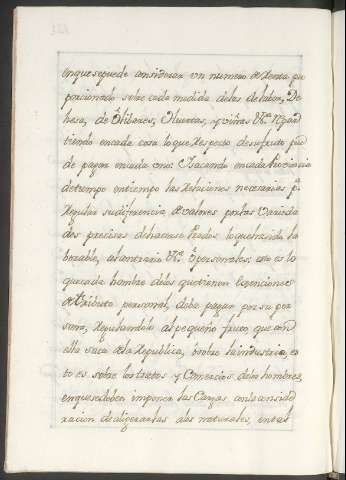 en que se puede considerar un numero de Renta, pro
porcionado sobre cada medida de las de labor, De
hesa, de Olibares, Huertas, y viñas &.ª Repar
tiendo en cada cosa lo que respecto de su fruto pue
de pagar en cada una: Y sacando en cada Provincia
de tiempo en tiempo las Relaciones necesarias p.ª
regular su diferencia de valores por las varieda
des precisas de hacerse Prados lo que ha sido la
brable, al contrario &.ª Personales: esto es lo
que cada hombre de los que tienen
de tributo personal, debe pagar por su per
sona, regulandolo al pequeño fruto, que con
ella saca de la Republica, sobre la industria, es
to es sobre los tratos y Comercios de los hombres,
en que se deben imponer las Cargas, con la conside
racion de aligerarlas a los naturales, en tal